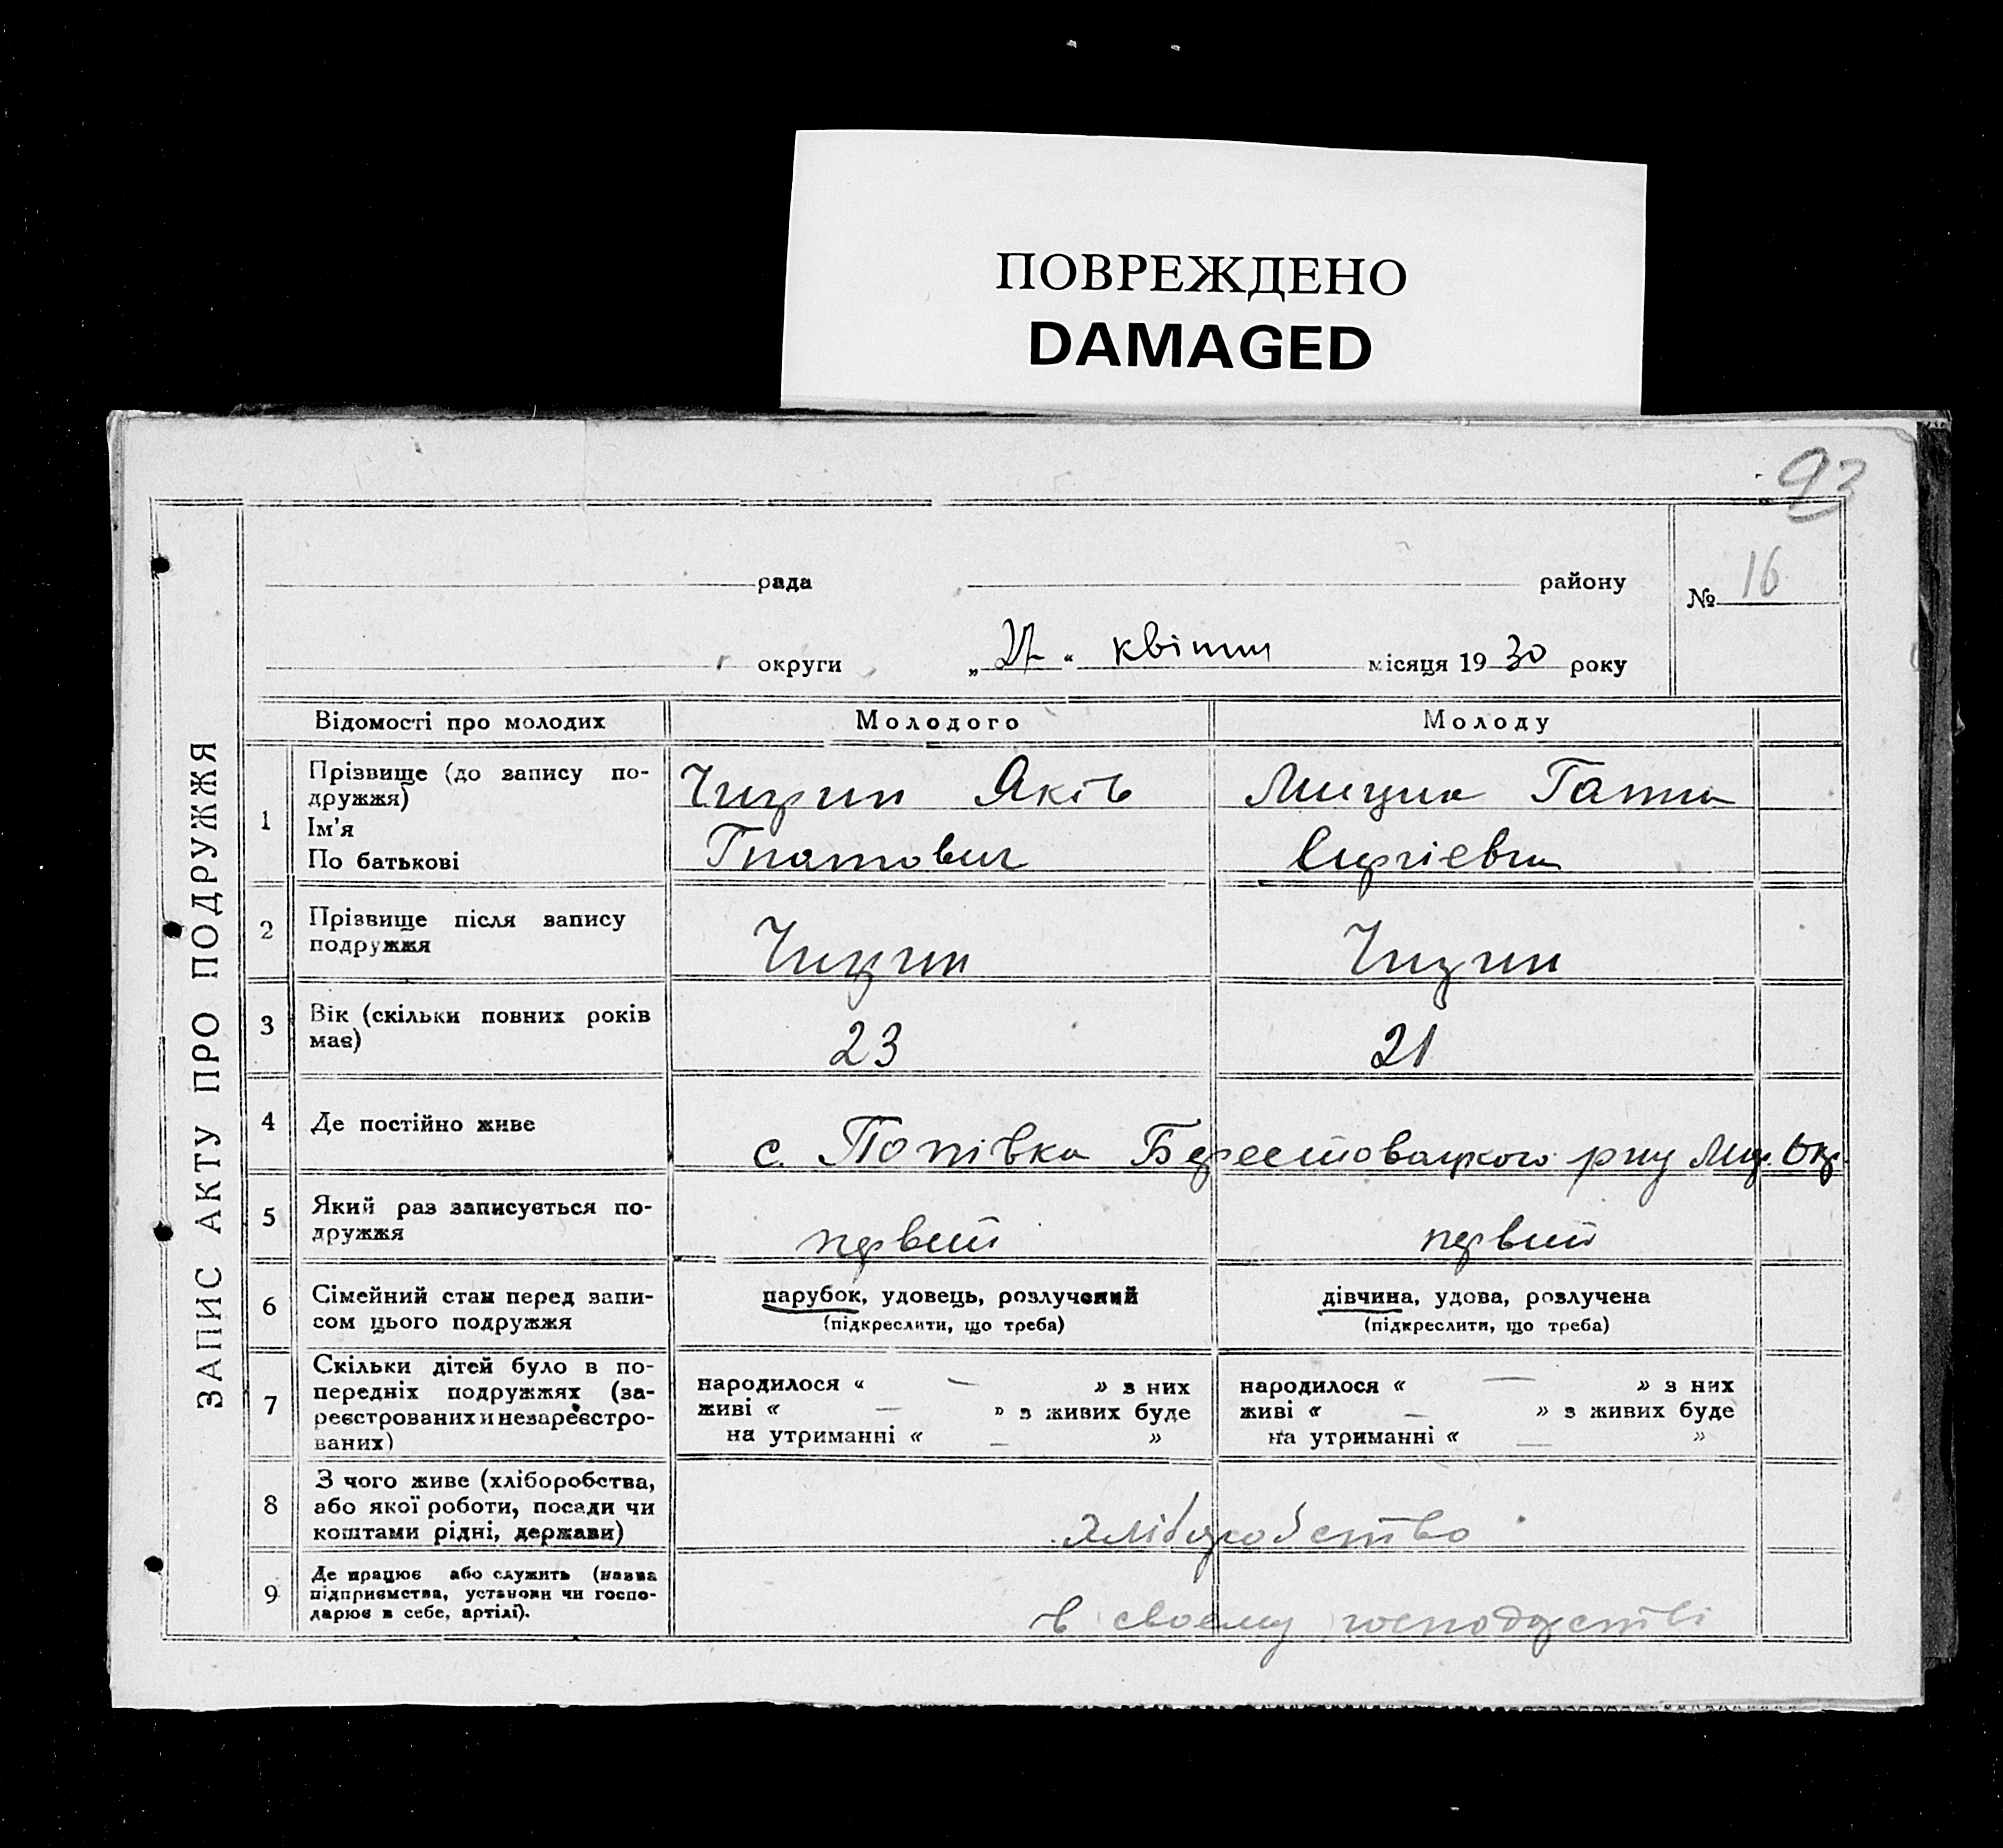 ПОВРЕЖДЕНО
DAMAGED
93
рада району № 16
округи „27“ квітня місяця 1930 року
ЗАПИС АКТУ ПРО ПОДРУЖЖЯ
Відомості про молодих Молодого Молоду
1 Прізвище (до запису по-
дружжя)
Ім'я
По батькові
Яків
Гнатович
Ганна
Сергієвна
2 Прізвище після запису
подружжя
3 Вік (скільки повних років
має)
23 21
4 Де постійно живе
с. Попівка Берестовацького р-ну
5 Який раз записується по-
дружжя
первий первий
6 Сімейний стан перед запи-
сом цього подружжя
парубок, удовець, розлучений
(підкреслити, що треба)
дівчина, удова, розлучена
(підкреслити, що треба)
7 Скільки дітей було в по-
передніх подружжях (за-
реєстрованих и незареєстро-
ваних)
народилося « — » з них
живі « — » з живих буде
на утриманні « — »
народилося « — » з них
живі « — » з живих буде
на утриманні « — »
8 З чого живе (хліборобства,
або якої роботи, посади чи
коштами рідні, держави)
хліборобство
9 Де працює або служить (назва
підприємства, установи чи госпо-
дарює в себе, артілі).
в своєму господарстві